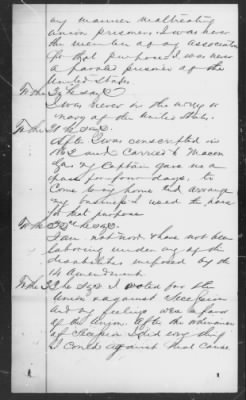 any manner maltreating
union prisoners. I was never
the member of any association
for that purpose. I was never
a paroled prisoner of the
United States
To the he says
I was never in the army or
navy of the United States.
To the 31 he says
After I was conscripted in
1862 and carried to Macon
Ga my Captain gave me a
pass for four days. to
come to my home and arrange
my business I used the pass
for that purpose
To the he says.
I am not now & have not been
laboring under any of the
disabilities imposed by the
14 Amendment
To the 33 he says I voted for the
Union & against Secession
and my feelings was in favor
of the Union. After the ordinance
of Secession I did every thing
I could against that cause.